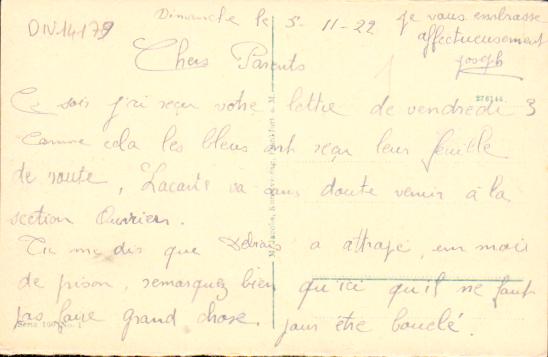 DIV14179
Dimanche le 5-11-22
je vous embrasse
affectueusement
Joseph
Chers Parents
Ce soir j'ai reçu votre lettre de vendredi 3
276144
Comme cela les bleus ont reçu leur feuille
de route, va sans doute venir à la
section Ouvriers.
Tu me dis que a attrapé, un mois
de prison, remarquez bien qu'ici qu'il ne faut
pas faire grand chose pour être bouclé.
Serie 100 No. 1